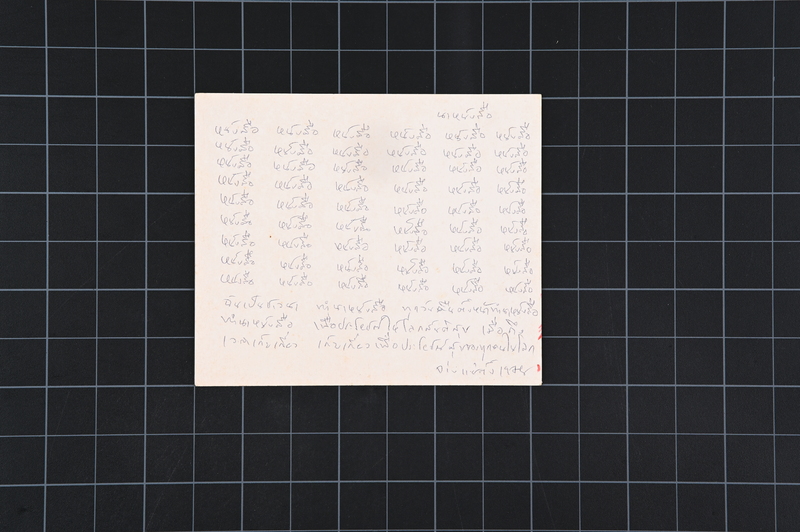 นาหนังสือ
หนังสือ หนังสือ หนังสือ หนังสือ หนังสือ หนังสือ
หนังสือ หนังสือ หนังสือ หนังสือ หนังสือ หนังสือ
หนังสือ หนังสือ หนังสือ หนังสือ หนังสือ หนังสือ
หนังสือ หนังสือ หนังสือ หนังสือ หนังสือ หนังสือ
หนังสือ หนังสือ หนังสือ หนังสือ หนังสือ หนังสือ
หนังสือ หนังสือ หนังสือ หนังสือ หนังสือ หนังสือ
หนังสือ หนังสือ หนังสือ หนังสือ หนังสือ หนังสือ
หนังสือ หนังสือ หนังสือ หนังสือ หนังสือ หนังสือ
หนังสือ หนังสือ หนังสือ หนังสือ หนังสือ หนังสือ
ฉันเป็นชาวนา ทำนาหนังสือ ทุกวันคืนก้มหน้าทำนาหนังสือ
ทำนาหนังสือ เพื่อประโยชน์ในโลกสันติสุข เมื่อถึง
เวลาเก็บเกี่ยว เก็บเกี่ยวเพื่อประโยชน์สุขของทุกคนในโลก
จ่าง แซ่ตั้ง